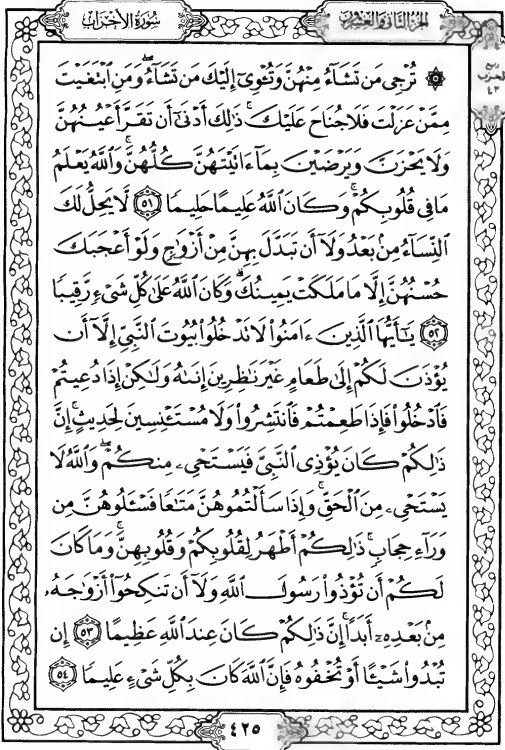 سُورَةُ الأَحْزَابِ
الجُزْءُ الثَّانِي وَالعِشْرُونَ
ربع
الحزب
٤٣
۞ تُرْجِي مَن تَشَآءُ مِنْهُنَّ وَتُـْٔوِيٓ إِلَيْكَ مَن تَشَآءُۖ وَمَنِ ٱبْتَغَيْتَ
مِمَّنْ عَزَلْتَ فَلَا جُنَاحَ عَلَيْكَۚ ذَٰلِكَ أَدْنَىٰٓ أَن تَقَرَّ أَعْيُنُهُنَّ
وَلَا يَحْزَنَّ وَيَرْضَيْنَ بِمَآ ءَاتَيْتَهُنَّ كُلُّهُنَّۚ وَٱللَّهُ يَعْلَمُ
مَا فِي قُلُوبِكُمْۚ وَكَانَ ٱللَّهُ عَلِيمًا حَلِيمًا ٥١ لَّا يَحِلُّ لَكَ
ٱلنِّسَآءُ مِنۢ بَعْدُ وَلَآ أَن تَبَدَّلَ بِهِنَّ مِنْ أَزْوَٰجٍ وَلَوْ أَعْجَبَكَ
حُسْنُهُنَّ إِلَّا مَا مَلَكَتْ يَمِينُكَۗ وَكَانَ ٱللَّهُ عَلَىٰ كُلِّ شَىْءٍ رَّقِيبًا
٥٢ يَٰٓأَيُّهَا ٱلَّذِينَ ءَامَنُوا۟ لَا تَدْخُلُوا۟ بُيُوتَ ٱلنَّبِيِّ إِلَّآ أَن
يُؤْذَنَ لَكُمْ إِلَىٰ طَعَامٍ غَيْرَ نَٰظِرِينَ إِنَىٰهُ وَلَٰكِنْ إِذَا دُعِيتُمْ
فَٱدْخُلُوا۟ فَإِذَا طَعِمْتُمْ فَٱنتَشِرُوا۟ وَلَا مُسْتَـْٔنِسِينَ لِحَدِيثٍۚ إِنَّ
ذَٰلِكُمْ كَانَ يُؤْذِي ٱلنَّبِيَّ فَيَسْتَحْيِۦ مِنكُمْۖ وَٱللَّهُ لَا
يَسْتَحْيِۦ مِنَ ٱلْحَقِّۚ وَإِذَا سَأَلْتُمُوهُنَّ مَتَٰعًا فَسْـَٔلُوهُنَّ مِن
وَرَآءِ حِجَابٍۚ ذَٰلِكُمْ أَطْهَرُ لِقُلُوبِكُمْ وَقُلُوبِهِنَّۚ وَمَا كَانَ
لَكُمْ أَن تُؤْذُوا۟ رَسُولَ ٱللَّهِ وَلَآ أَن تَنكِحُوٓا۟ أَزْوَٰجَهُۥ
مِنۢ بَعْدِهِۦٓ أَبَدًاۚ إِنَّ ذَٰلِكُمْ كَانَ عِندَ ٱللَّهِ عَظِيمًا ٥٣ إِن
تُبْدُوا۟ شَيْـًٔا أَوْ تُخْفُوهُ فَإِنَّ ٱللَّهَ كَانَ بِكُلِّ شَىْءٍ عَلِيمًا ٥٤
٤٢٥